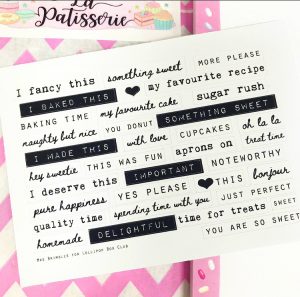 La
Patisserie
I fancy this something sweet MORE PLEASE
I BAKED THIS my favourite recipe
BAKING TIME my favourite cake sugar rush
naughty but nice YOU DONUT SOMETHING SWEET
I MADE THIS with love CUPCAKES oh la la
hey sweetie THIS WAS FUN aprons on treat time
I deserve this IMPORTANT NOTEWORTHY
pure happiness YES PLEASE THIS bonjour
quality time spending time with you JUST PERFECT
homemade DELIGHTFUL time for treats SWEET
YOU ARE SO SWEET
MRS BRIMBLES FOR LOLLIPOP BOX CLUB